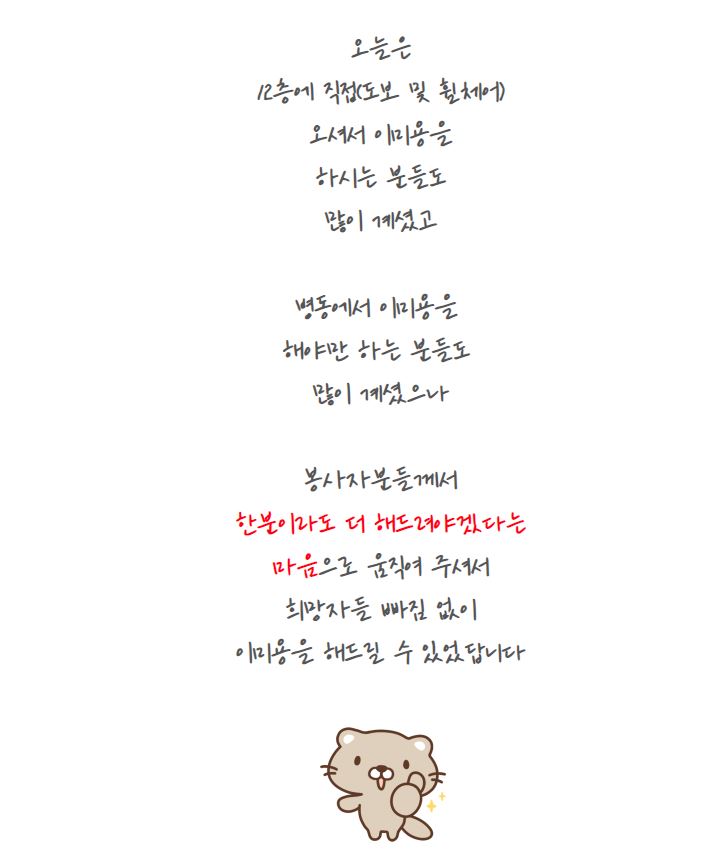 오늘은
12층에 직접(도보 및 휠체어)
오셔서 이미용을
하시는 분들도
많이 계셨고
병동에서 이미용을
해야만 하는 분들도
많이 계셨으나
봉사자분들께서
한분이라도 더 해드려야겠다는
마음으로 움직여 주셔서
희망자들 빠짐 없이
이미용을 해드릴 수 있었답니다